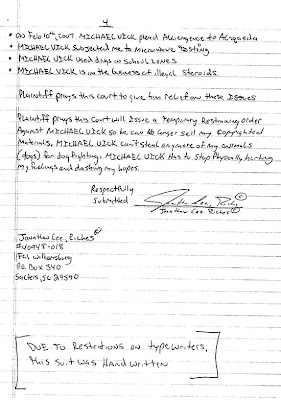 4
• on Feb 10th, 2007 MICHAEL VICK plead Allengence to Alqaeda
• MICHAEL VICK subjected me to microwave testing
• MICHAEL VICK used drugs in school zones
• MICHAEL VICK is in the business of illegal steroids.
Plaintiff prays this court to give him relief on these issues
Plaintiff prays this court will issue a Temporary Restraining order
Against MICHAEL VICK so he can no longer sell my copyrighted
Materials, MICHAEL VICK can't steal anymore of my animals
(dogs) for dog fighting. MICHAEL VICK Has to stop Physically hurting
my feelings and dashing my hopes.
Respectfully
Submitted
Jonathan Lee Riches ©
Jonathan Lee Riches ©
Jonathan Lee, Riches ©
#40948-018
FCI Williamsburg
P.O. Box 340
Salters, SC 29590
DUE TO Restrictions on typewriters,
this suit was Hand written